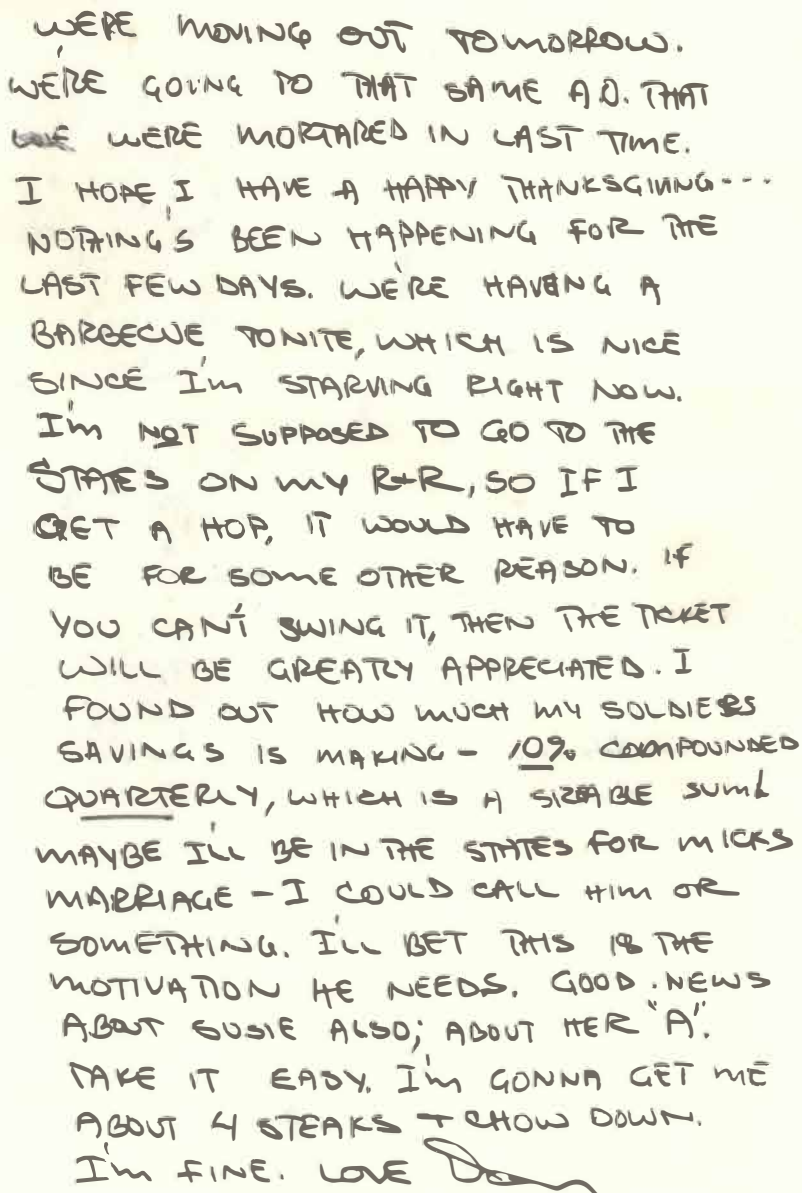 WE'RE MOVING OUT TOMORROW.
WE'RE GOING TO THAT SAME A.O. THAT
WE WERE MORTARED IN LAST TIME.
I HOPE I HAVE A HAPPY THANKSGIVING---
NOTHING'S BEEN HAPPENING FOR THE
LAST FEW DAYS. WE'RE HAVING A
BARBECUE TONITE, WHICH IS NICE
SINCE I'M STARVING RIGHT NOW.
I'M NOT SUPPOSED TO GO TO THE
STATES ON MY R+R, SO IF I
GET A HOP, IT WOULD HAVE TO
BE FOR SOME OTHER REASON. IF
YOU CAN'T SWING IT, THEN THE TICKET
WILL BE GREATLY APPRECIATED. I
FOUND OUT HOW MUCH MY SOLDIERS
SAVINGS IS MAKING - 10% COMPOUNDED
QUARTERLY, WHICH IS A SIZEABLE SUM.
MAYBE I'LL BE IN THE STATES FOR MICKS
MARRIAGE - I COULD CALL HIM OR
SOMETHING. I'LL BET THIS IS THE
MOTIVATION HE NEEDS. GOOD NEWS
ABOUT SUSIE ALSO; ABOUT HER "A".
TAKE IT EASY. I'M GONNA GET ME
ABOUT 4 STEAKS + CHOW DOWN.
I'M FINE. LOVE